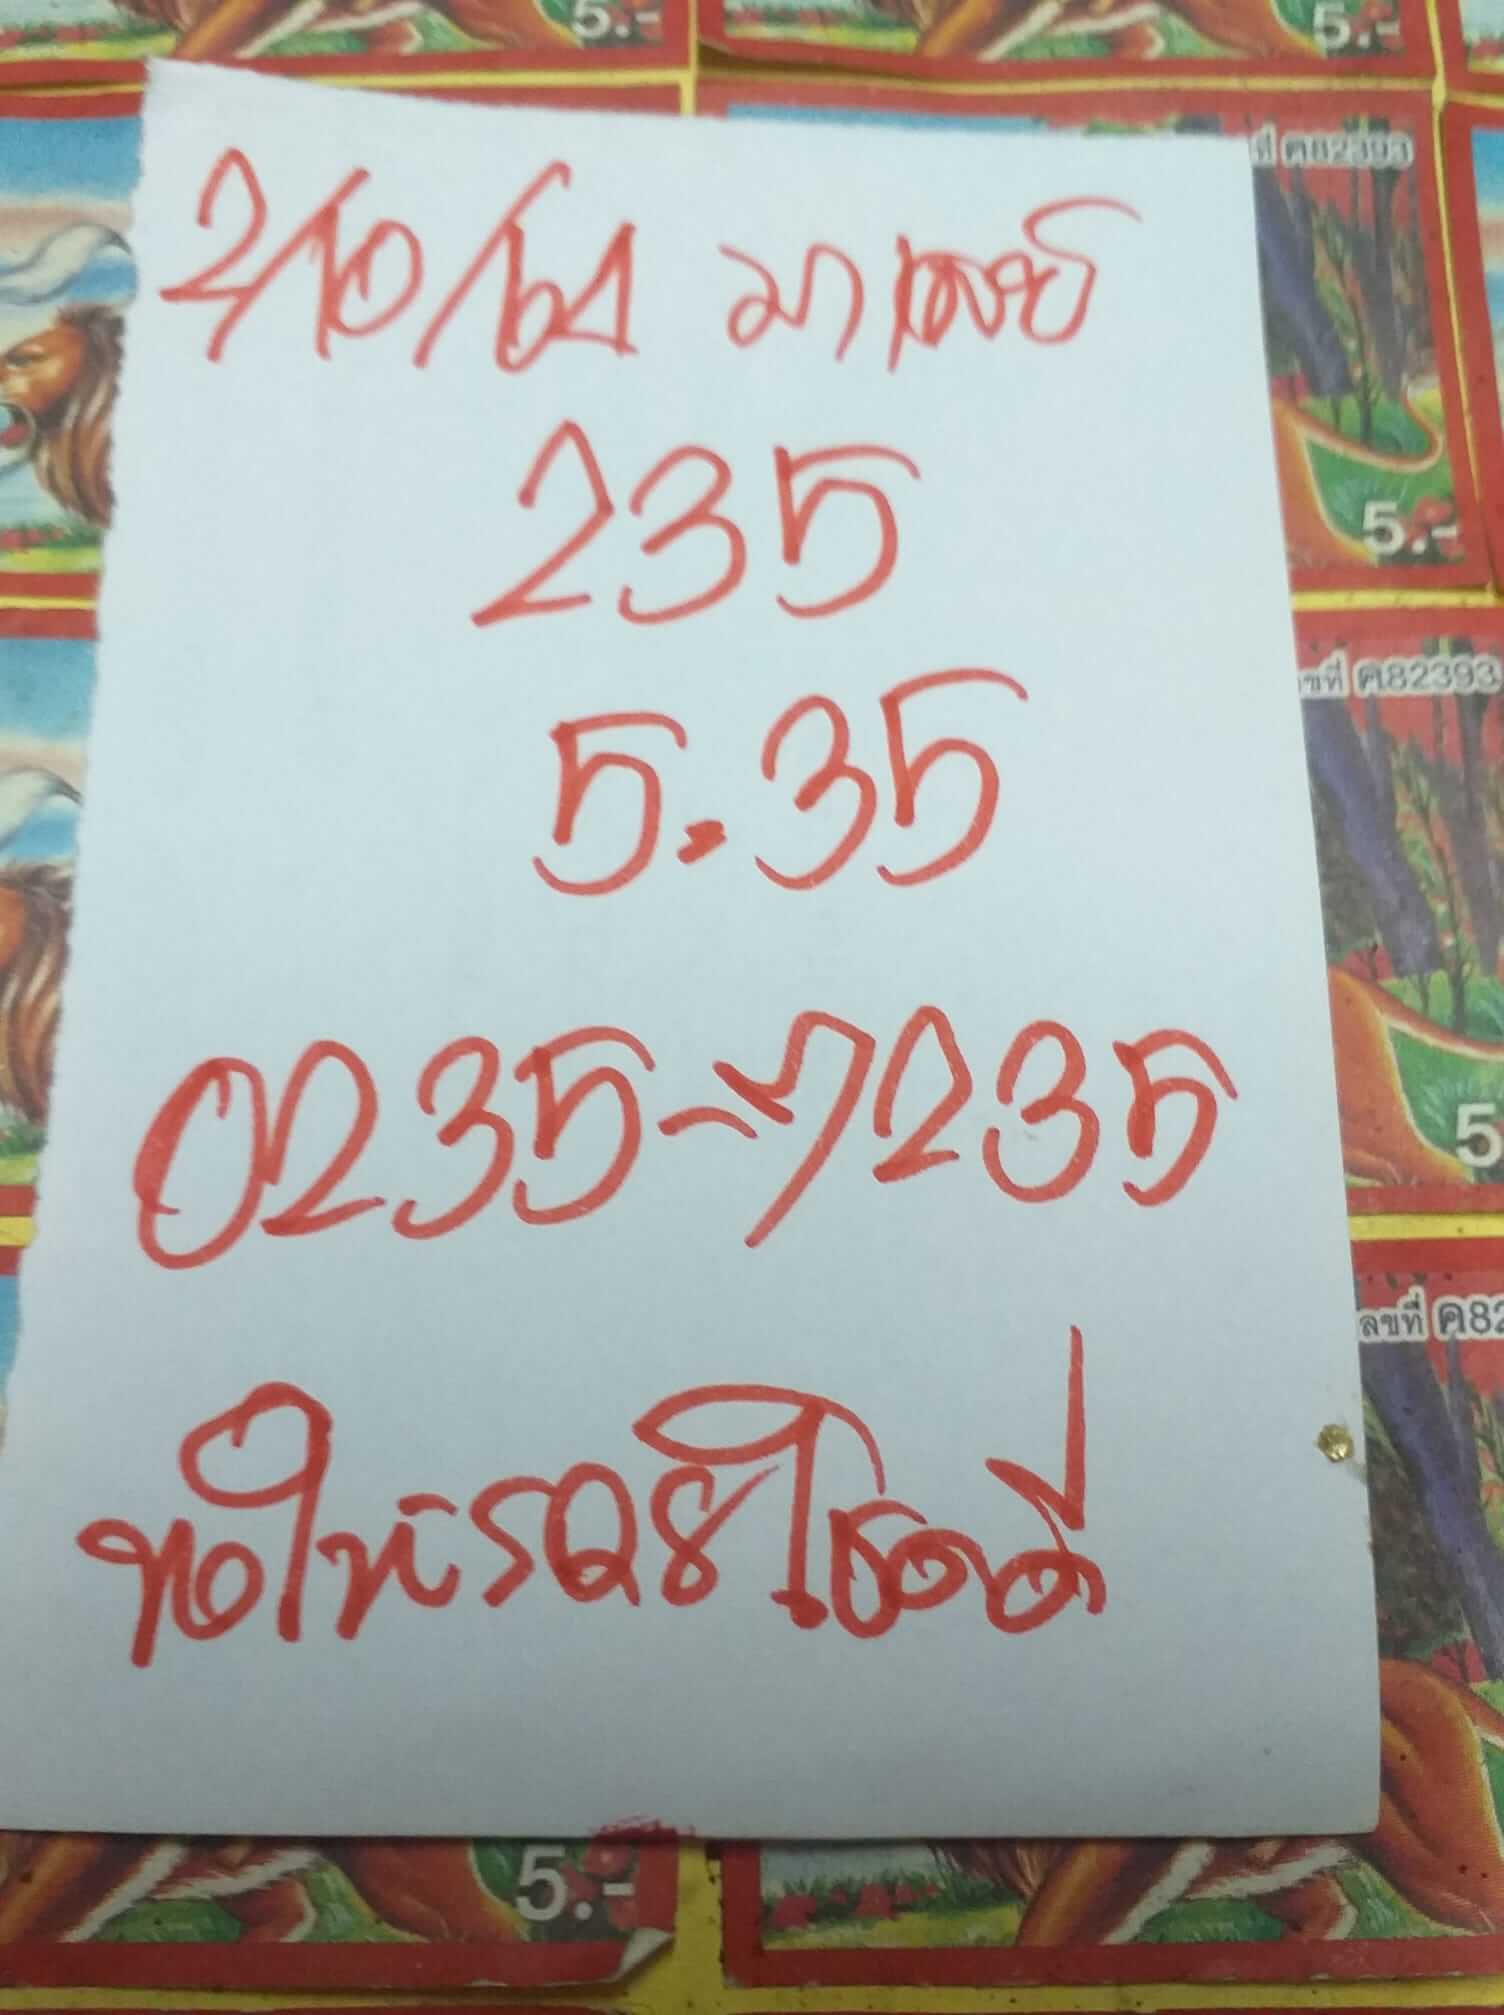 5.-
5.-
ที่ ค82393
2/10/64 มาเลย์
235
5.-
5.35
ขที่ ค82393
0235-7235
5
ลขที่ ค82
ขอให้รวยโชคดี
5.-